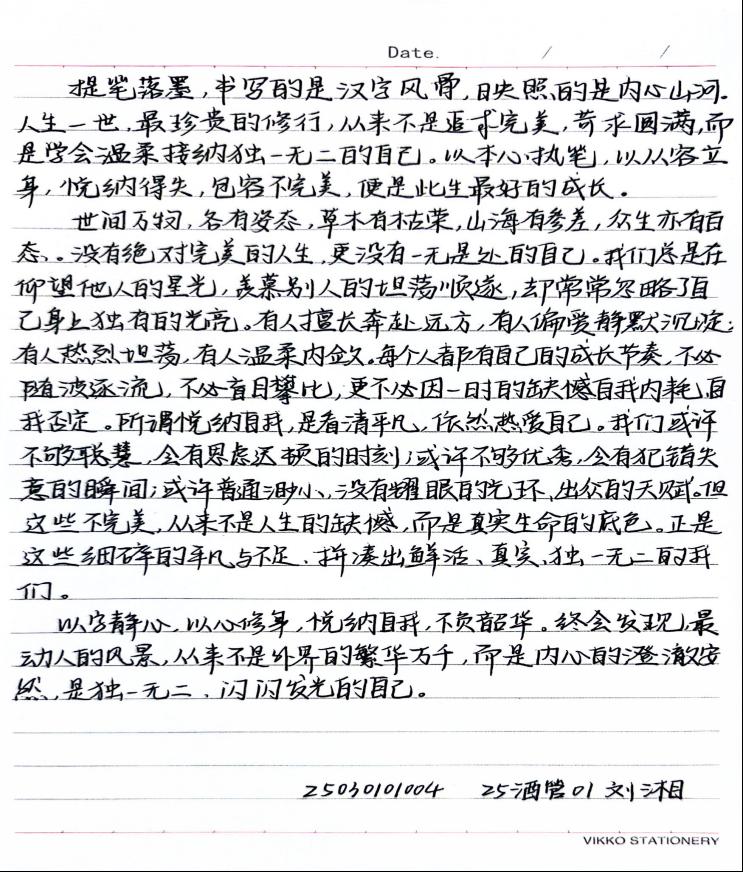 Date. / /
提笔落墨，书写的是汉字风骨，映照的是内心山河.
人生一世，最珍贵的修行，从来不是追求完美，苛求圆满，而
是学会温柔接纳独一无二的自己。以本心执笔，以从容立
身，悦纳得失，包容不完美，便是此生最好的成长。
世间万物，各有姿态，草木有枯荣，山海有参差，众生亦有百
态。没有绝对完美的人生，更没有一无是处的自己。我们总是在
仰望他人的星光，羡慕别人的坦荡顺遂，却常常忽略了自
己身上独有的光亮。有人擅长奔赴远方，有人偏爱静默沉淀；
有人热烈坦荡，有人温柔内敛。每个人都有自己的成长节奏，不必
随波逐流，不必盲目攀比，更不必因一时的缺憾自我内耗、自
我否定。所谓悦纳自我，是看清平凡，依然热爱自己。我们或许
不够聪慧，会有思虑迟顿的时刻；或许不够优秀，会有犯错失
意的瞬间；或许普通渺小，没有耀眼的光环、出众的天赋。但
这些不完美，从来不是人生的缺憾，而是真实生命的底色。正是
这些细碎的平凡与不足、拼凑出鲜活、真实、独一无二的我
们。
以字静心，以心修身，悦纳自我，不负韶华。终会发现，最
动人的风景，从来不是外界的繁华万千，而是内心的澄澈安
然，是独一无二、闪闪发光的自己。
25030101004 25酒管01 刘湘
VIKKO STATIONERY